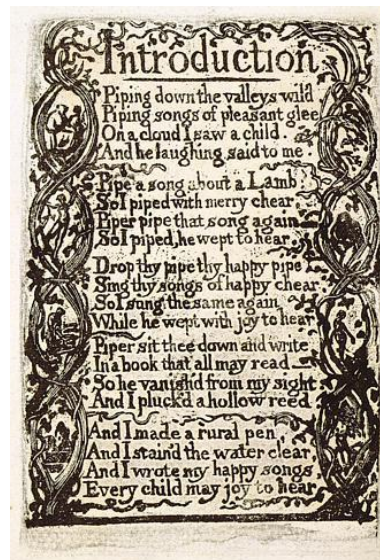 Introduction
Piping down the valleys wild
Piping songs of pleasant glee
On a cloud I saw a child.
And he laughing said to me.
Pipe a song about a Lamb:
So I piped with merry chear,
Piper pipe that song again—
So I piped, he wept to hear.
Drop thy pipe thy happy pipe
Sing thy songs of happy chear
So I sung the same again
While he wept with joy to hear
Piper sit thee down and write
In a book that all may read—
So he vanish'd from my sight
And I pluck'd a hollow reed.
And I made a rural pen,
And I stain'd the water clear,
And I wrote my happy songs
Every child may joy to hear